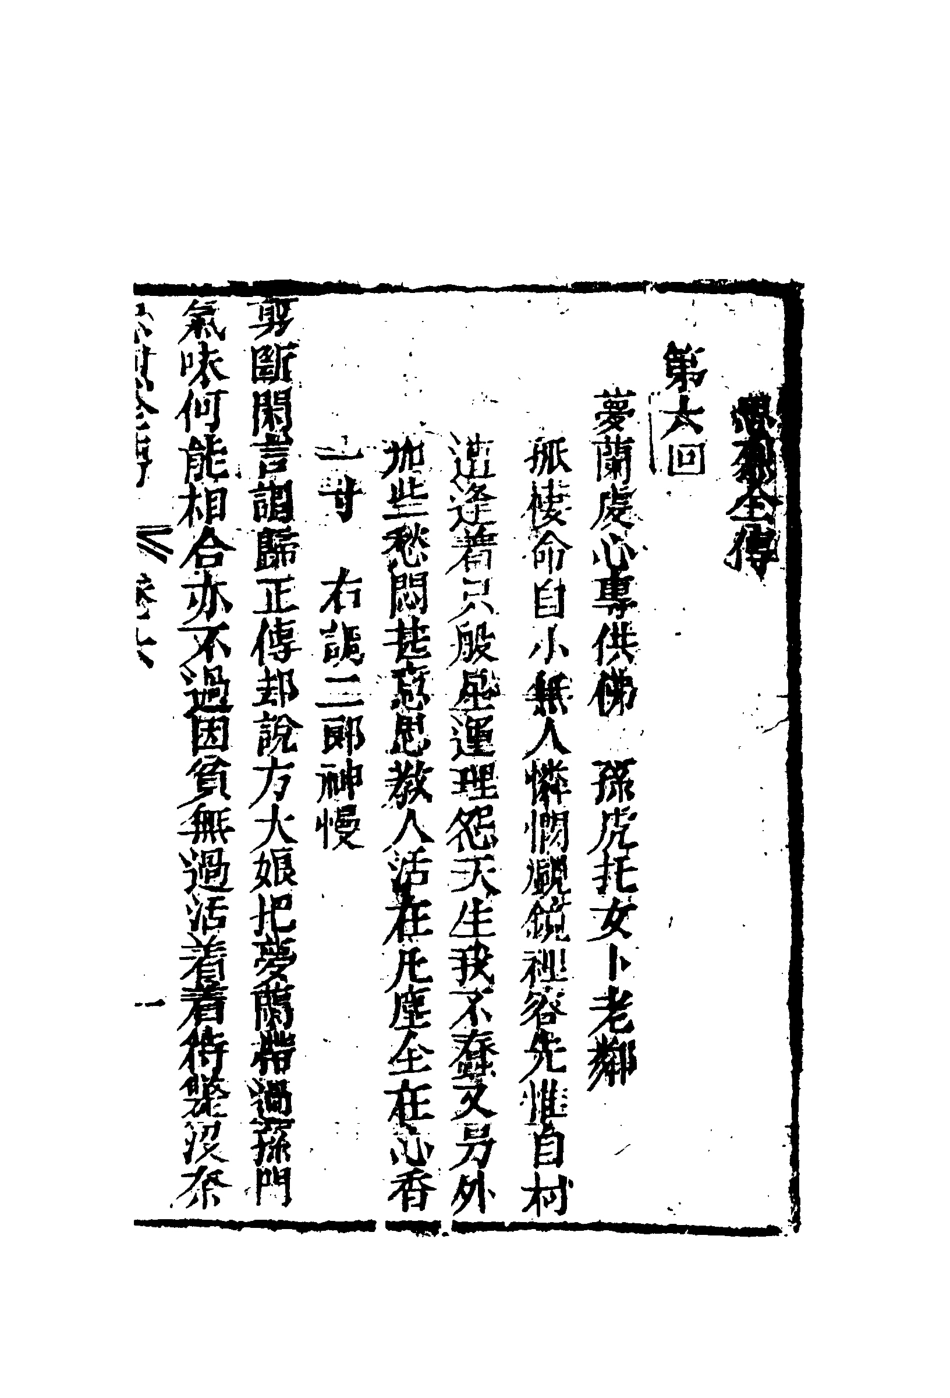 全傳
第六回
夢蘭處心專供佛　孫虎托女卜老鄰
孤棲命自小無人憐憫覷鏡裡容先惟自村
遭逢着只般㢠運理怨天生我不蠢又另外
加些愁悶甚意思教人活在凡塵全在心香
一寸　右調二郎神慢
剪斷閑言謌歸正傳却說方大娘把夢蘭帶過孫門
氣味何能相合亦不過因貧無過活着着待斃沒奈
全傳　卷六　一